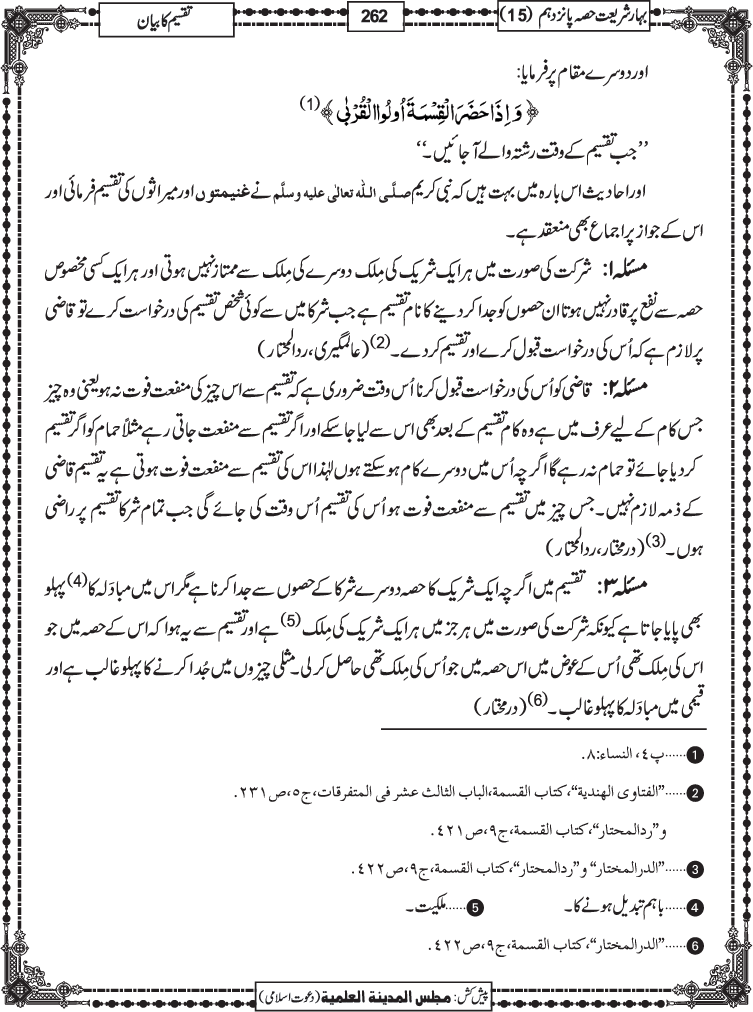 بہارِ شریعت حصہ پانزدہم (15)
262
تقسیم کا بیان
اور دوسرے مقام پر فرمایا:
﴿ وَ اِذَا حَضَرَ الْقِسْمَةَ اُولُوا الْقُرْبٰى ﴾(1)
’’جب تقسیم کے وقت رشتہ والے آجائیں۔‘‘
اور احادیث اس بارہ میں بہت ہیں کہ نبی کریم صلَّی اللہ تعالٰی علیہ وسلَّم نے غنیمتوں اور میراثوں کی تقسیم فرمائی اور
اس کے جواز پر اجماع بھی منعقد ہے۔
مسئلہ ۱: شرکت کی صورت میں ہر ایک شریک کی مِلک دوسرے کی مِلک سے ممتاز نہیں ہوتی اور ہر ایک کسی مخصوص
حصہ سے نفع پر قادر نہیں ہوتا ان حصوں کو جدا کر دینے کا نام تقسیم ہے جب شرکا میں سے کوئی شخص تقسیم کی درخواست کرے تو قاضی
پر لازم ہے کہ اُس کی درخواست قبول کرے اور تقسیم کردے۔(2) (عالمگیری، ردالمحتار)
مسئلہ ۲: قاضی کو اُس کی درخواست قبول کرنا اُس وقت ضروری ہے کہ تقسیم سے اس چیز کی منفعت فوت نہ ہو یعنی وہ چیز
جس کام کے لیے عرف میں ہے وہ کام تقسیم کے بعد بھی اس سے لیا جا سکے اور اگر تقسیم سے منفعت جاتی رہے مثلاً حمام کو اگر تقسیم
کر دیا جائے تو حمام نہ رہے گا اگرچہ اُس میں دوسرے کام ہو سکتے ہوں لہٰذا اس کی تقسیم سے منفعت فوت ہوتی ہے یہ تقسیم قاضی
کے ذمہ لازم نہیں۔ جس چیز میں تقسیم سے منفعت فوت ہو اُس کی تقسیم اُس وقت کی جائے گی جب تمام شرکا تقسیم پر راضی
ہوں۔(3) (درمختار، ردالمحتار)
مسئلہ ۳: تقسیم میں اگرچہ ایک شریک کا حصہ دوسرے شرکا کے حصوں سے جدا کرنا ہے مگر اس میں مبادَلہ کا(4) پہلو
بھی پایا جاتا ہے کیونکہ شرکت کی صورت میں ہر جز میں ہر ایک شریک کی مِلک (5) ہے اور تقسیم سے یہ ہوا کہ اس کے حصہ میں جو
اس کی مِلک تھی اُس کے عوض میں اس حصہ میں جو اُس کی مِلک تھی حاصل کر لی۔ مثلی چیزوں میں جُدا کرنے کا پہلو غالب ہے اور
قیمی میں مبادَلہ کا پہلو غالب۔(6) (درمختار)
1......پ٤، النساء:٨.
2......”الفتاوی الھندیة“، کتاب القسمة،الباب الثالث عشر فی المتفرقات،ج٥،ص٢٣١.
و”ردالمحتار“، کتاب القسمة،ج٩،ص٤٢١.
3......”الدرالمختار“ و”ردالمحتار“، کتاب القسمة،ج٩،ص٤٢٢.
4......باہم تبدیل ہونے کا۔ 5......ملکیت۔
6......”الدرالمختار“، کتاب القسمة،ج٩،ص٤٢٢.
پیش کش: مجلس المدینة العلمیة (دعوت اسلامی)